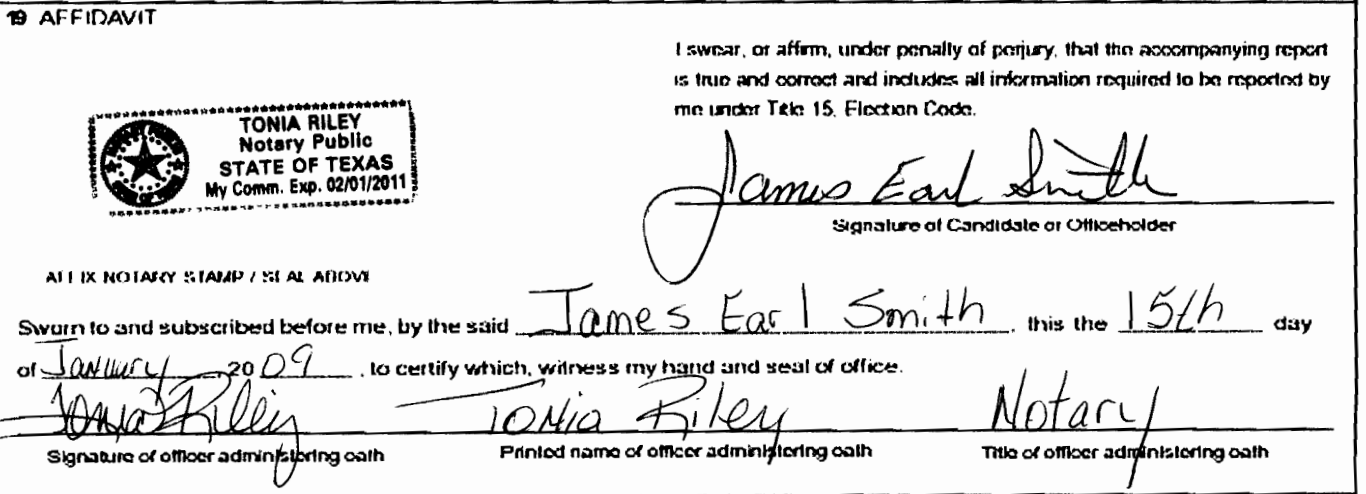 19 AFFIDAVIT
I swear, or affirm, under penalty of perjury, that the accompanying report
is true and correct and includes all information required to be reported by
me under Title 15, Election Code.
TONIA RILEY
Notary Public
STATE OF TEXAS
My Comm. Exp. 02/01/2011
James Earl Smith
Signature of Candidate or Officeholder
AFFIX NOTARY STAMP / SEAL ABOVE
Sworn to and subscribed before me, by the said James Earl Smith, this the 15th day
of January 20 09, to certify which, witness my hand and seal of office.
Tonia Riley Tonia Riley Notary
Signature of officer administering oath Printed name of officer administering oath Title of officer administering oath